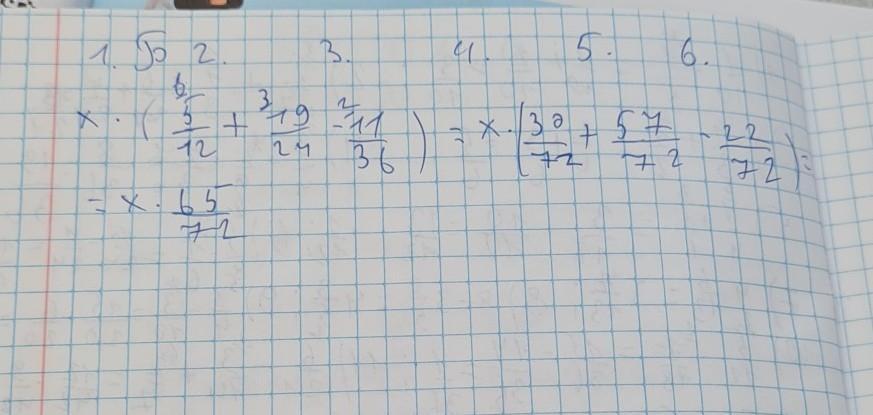 1. 50 2. 3. 4. 5. 6.
x · ( 6 5/12 + 3 19/24 - 2 11/36 ) = x · ( 30/72 + 57/72 - 22/72 ) =
= x · 65/72